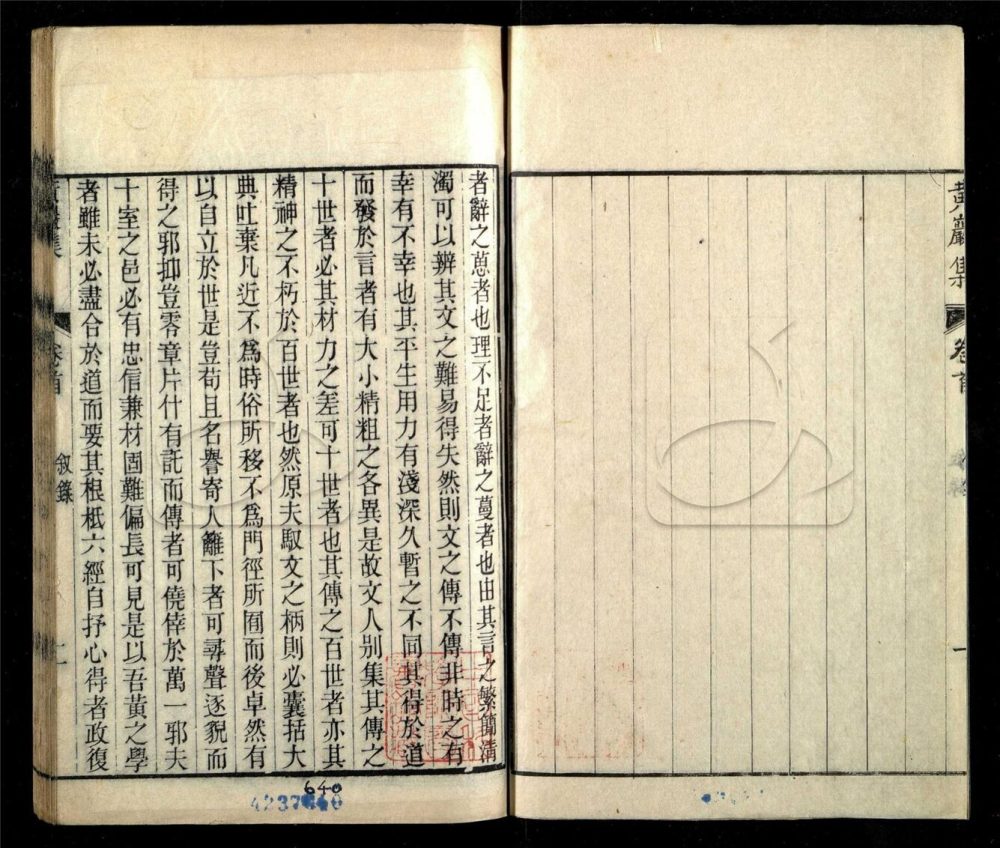 黃巖集
卷首
一
者辭之蒽者也理不足者辭之蔓者也由其言之繁簡清
濁可以辨其文之難易得失然則文之傳不傳非時之有
幸有不幸也其平生用力有淺深久暫之不同其得於道
而發於言者有大小精粗之各異是故文人別集其傳之
十世者必其材力之差可十世者也其傳之百世者亦其
精神之不朽於百世者也然原夫馭文之柄則必囊括大
典吐棄凡近不爲時俗所移不爲門徑所囿而後卓然有
以自立於世是豈苟且名譽寄人籬下者可尋聲逐貌而
得之邪抑豈零章片什有託而傳者可僥倖於萬一邪夫
十室之邑必有忠信兼材固難偏長可見是以吾黃之學
者雖未必盡合於道而要其根柢六經自抒心得者政復
黃巖集
卷首
敘錄
二
640
4237640